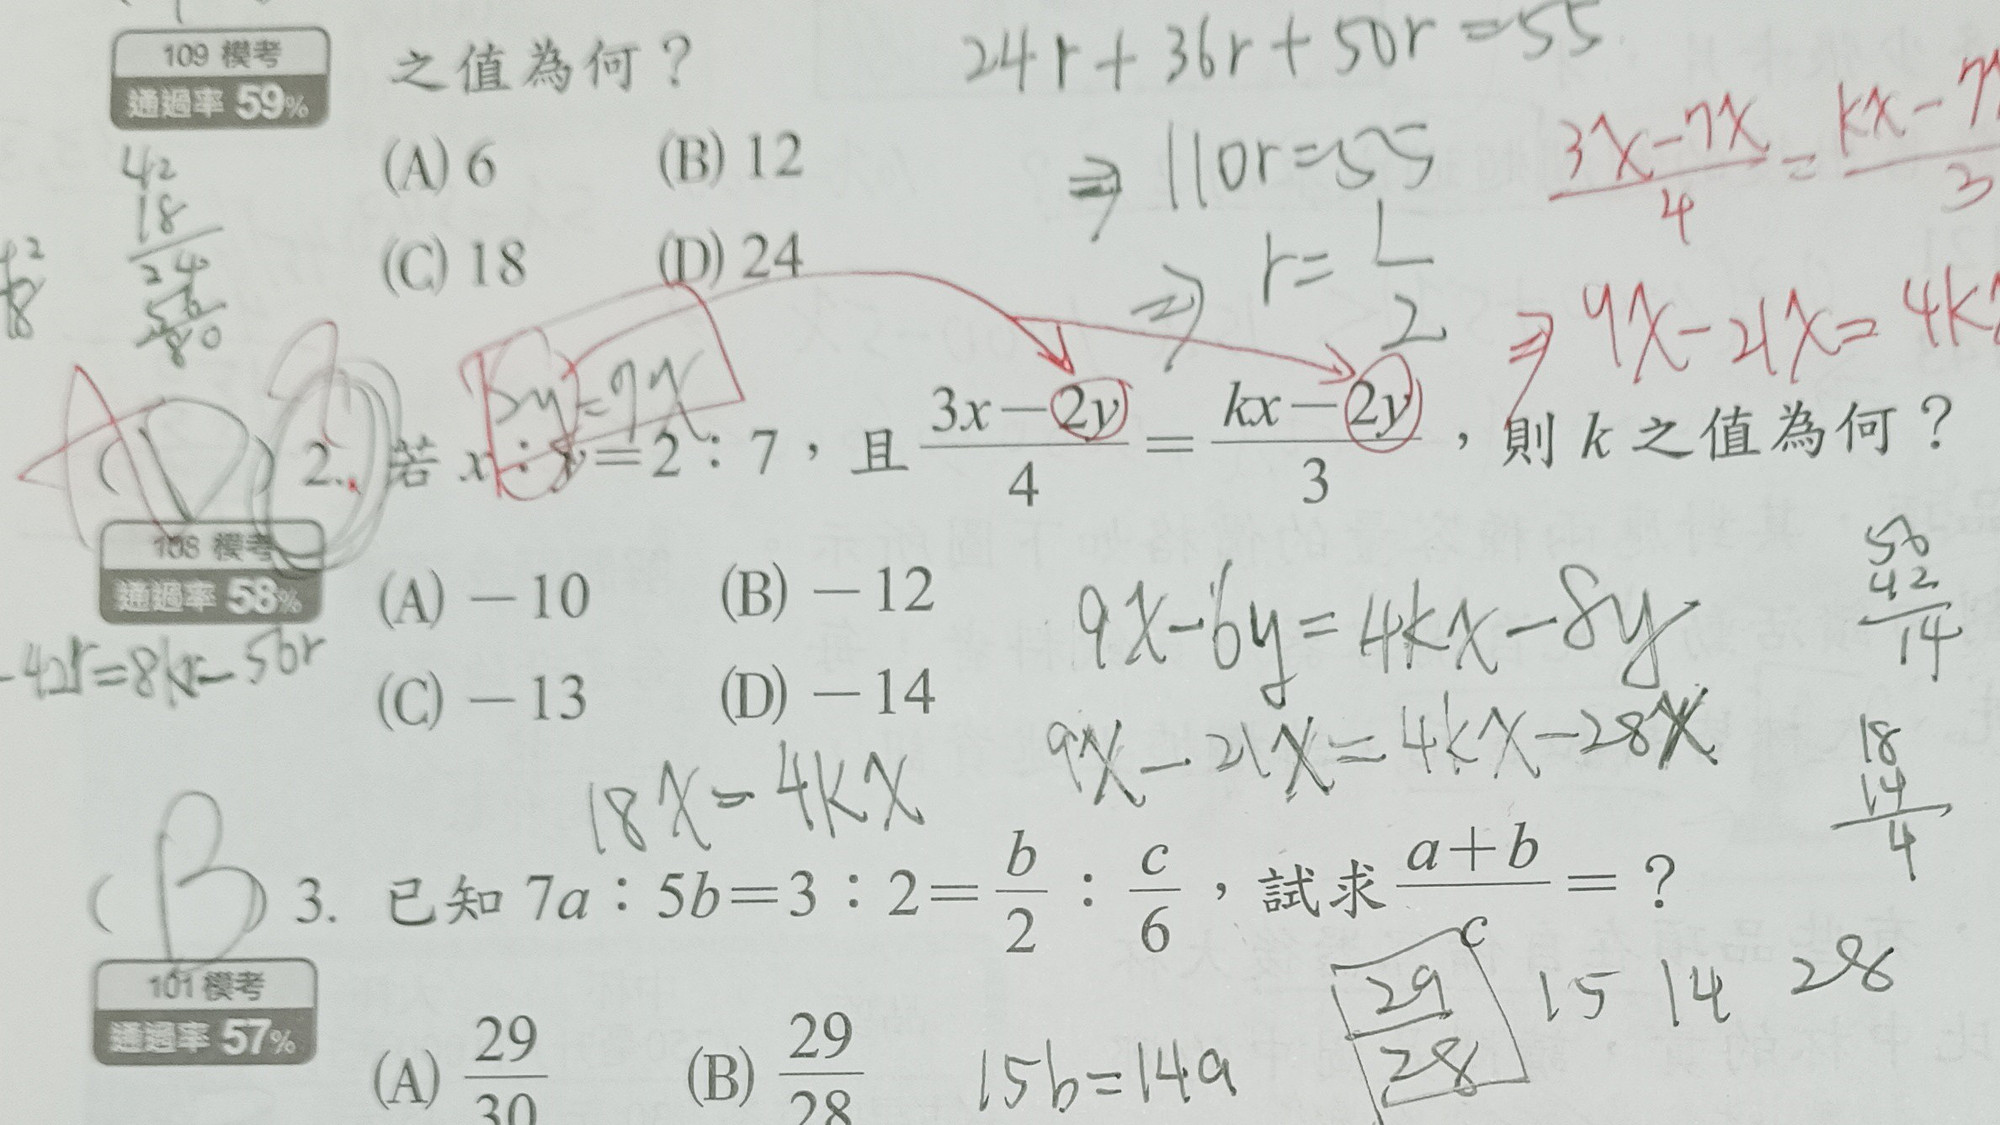 109 模考
通過率 59%
之值為何？
24r+36r+50r=55
(A) 6 (B) 12
⇒ 110r=55
(C) 18 (D) 24
⇒ r=1/2
42
18
24
56
80
(3x-7x)/4=(kx-7x)/3
⇒ 9x-21x=4k
2y=7x
2. 若 x：y=2：7，且 (3x-2y)/4=(kx-2y)/3，則 k 之值為何？
108 模考
通過率 58%
(A) -10 (B) -12
(C) -13 (D) -14
-42r=8kr-56r
9x-6y=4kx-8y
9x-21x=4kx-28x
18x=4kx
56
42
14
18
14
4
(B) 3. 已知 7a：5b=3：2=b/2：c/6，試求 (a+b)/c=？
101 模考
通過率 57%
(A) 29/30 (B) 29/28
15b=14a
29/28
15 14 28